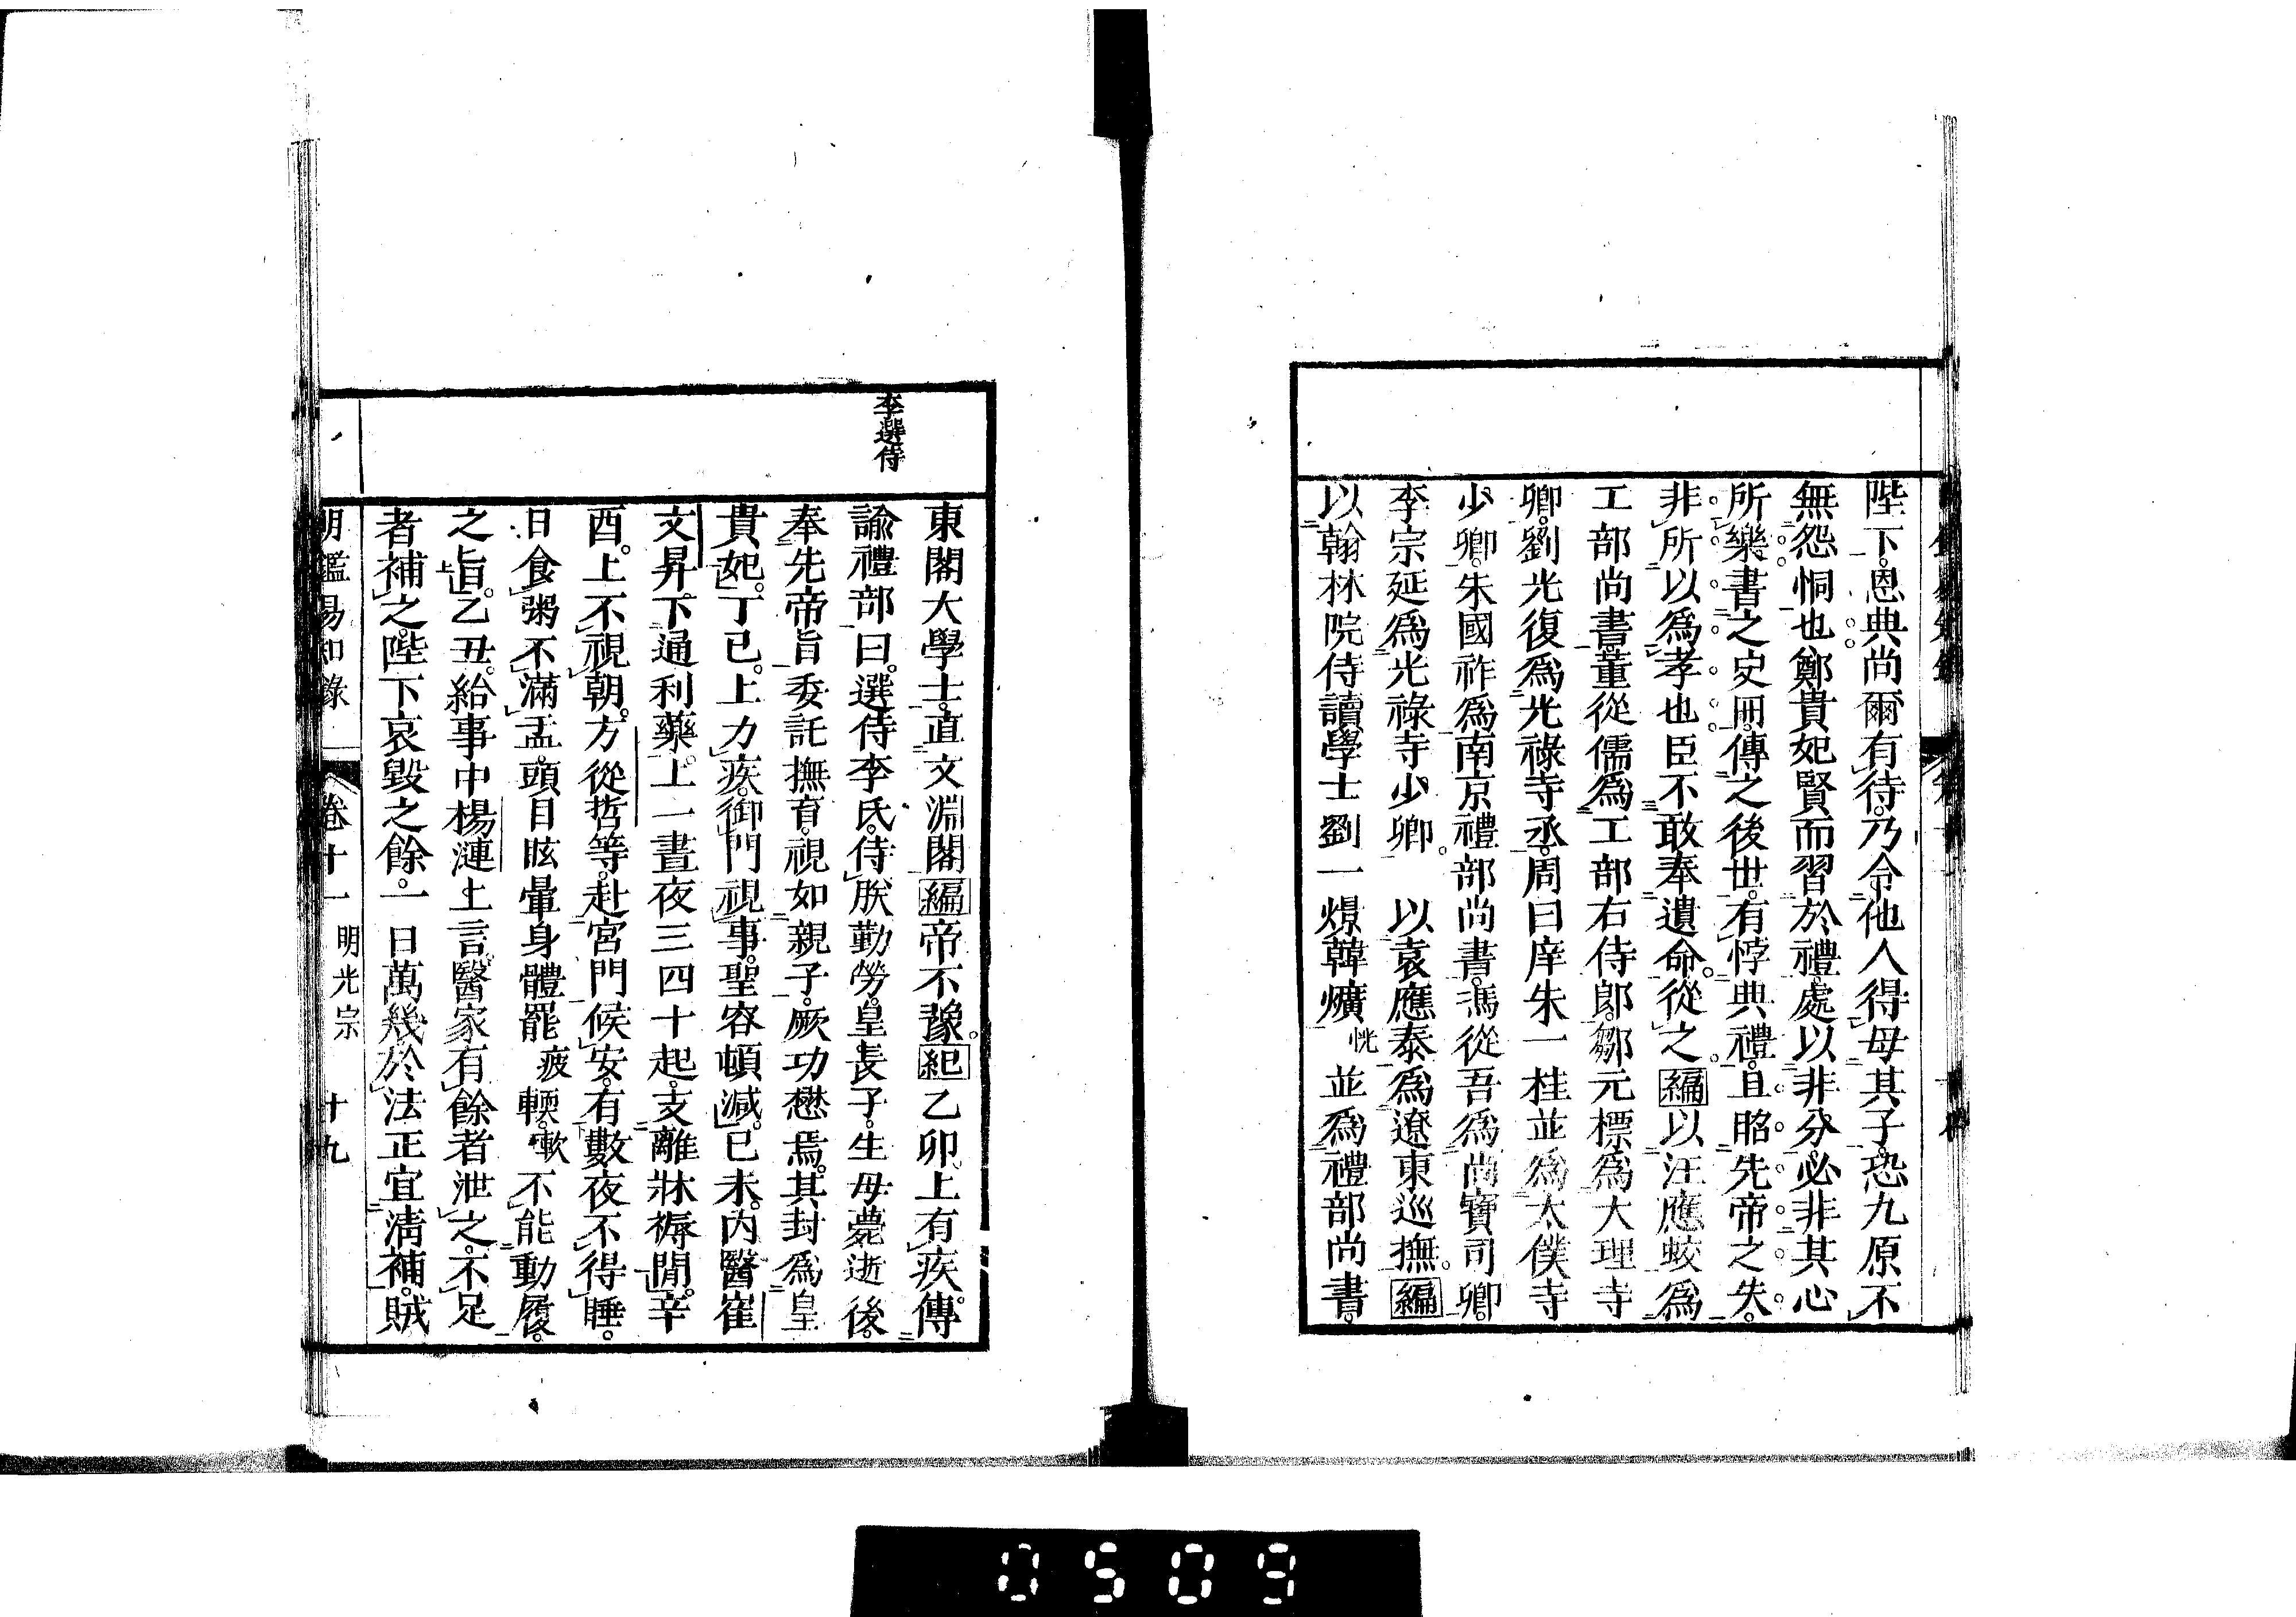 陛下恩典尚爾有待乃令他人得母其子恐九原不
無怨恫也鄭貴妃賢而習於禮處以非分必非其心
所樂書之史冊傳之後世有悖典禮且昭先帝之失
非所以為孝也臣不敢奉遺命從之編以汪應蛟為
工部尚書董從儒為工部右侍郎鄒元標為大理寺
卿劉光復為光祿寺丞周曰庠朱一桂並為太僕寺
少卿朱國祚為南京禮部尚書馮從吾為尚寶司卿
李宗延為光祿寺少卿 以袁應泰為遼東巡撫編
以翰林院侍讀學士劉一燝韓爌恍並為禮部尚書
李選侍
東閣大學士直文淵閣編帝不豫紀乙卯上有疾傳
諭禮部曰選侍李氏侍朕勤勞皇長子生母薨逝後
奉先帝旨委託撫育視如親子厥功懋焉其封為皇
貴妃丁巳上力疾御門視事聖容頓減已未內醫崔
文昇下通利藥上一晝夜三四十起支離牀褥間辛
酉上不視朝方從哲等赴宮門候安有數夜不得睡
日食粥不滿盂頭目眩暈身體罷疲輭軟不能動履
之旨乙丑給事中楊漣上言醫家有餘者泄之不足
者補之陛下哀毀之餘一日萬幾於法正宜淸補賊
明鑑易知錄 卷十一 明光宗 十九
0509